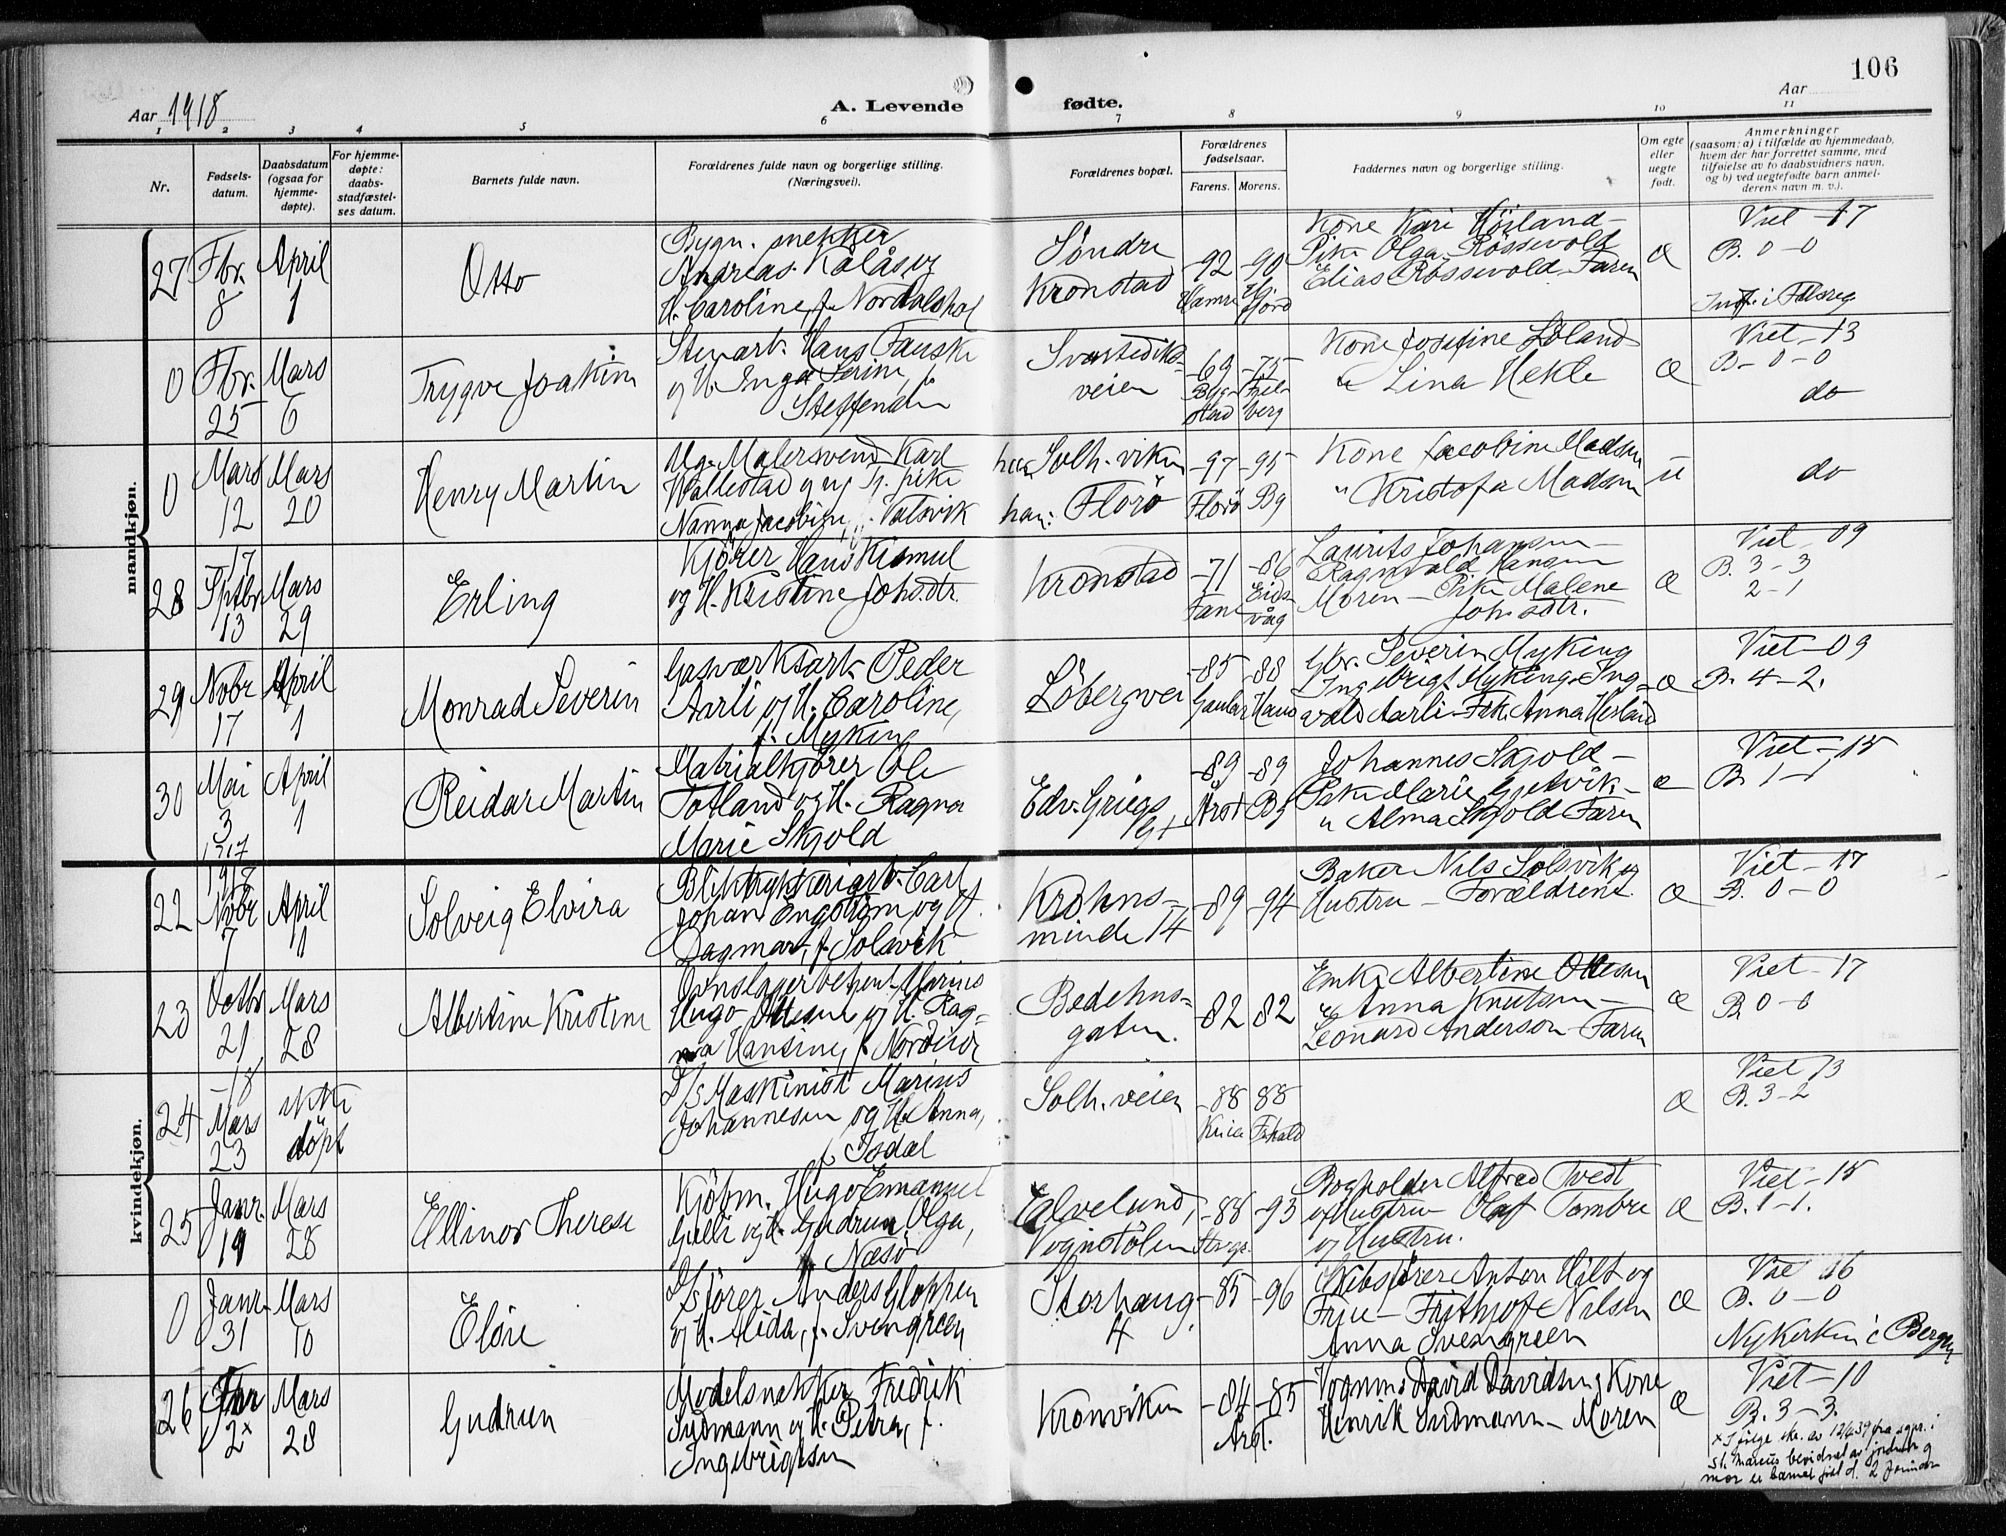 106
Aar 1918
A. Levende fødte.
Aar
1 2 3 4 5 6 7 8 9 10 11
Nr.
Fødsels-
datum.
Daabsdatum
(ogsaa for
hjemme-
døpte).
For hjemme-
døpte:
daabs-
stadfæstel-
ses datum.
Barnets fulde navn.
Forældrenes fulde navn og borgerlige stilling.
(Næringsvei).
Forældrenes bopæl.
Forældrenes
fødselsaar.
Farens. Morens.
Faddernes navn og borgerlige stilling.
Om egte
eller
uegte
født.
Anmerkninger
(saasom: a) i tilfælde av hjemmedaab,
hvem der har forrettet samme, med
tilføielse av to daabsvidners navn,
og b) ved uegtefødte barn anmel-
derens navn m. v.).
mandkjøn.
27
Fbr.
8
April
1
Otto
Bygn. snekker
Andreas Kålås og
H. Caroline f. Nordalshol
Søndre
Kronstad
-92
Hamre
-90
Kone Kari Høiland -
Pike Olga Røssevold
Elias Røssevold - Faren
Æ
Viet -17
B. 0-0
0
Fbr.
25
Mars
6
Trygve Joakim
Stuart. Hans Fauske
og H. Inga Serine, f.
Steffensen
veien
-69
-75
Kone Josefine Løland
" Lina Hekle
Æ
Viet -13
B- 0-0
do
0
Mars
12
Mars
20
Henry Martin
Ug. Malersvend Karl
og ug. Tj. pike
Nanna Jacobine, f. Vatsvik
hun Solh. viken
han: Florø
-97
Florø
-95
Bg
Kone Jacobine Madsen
" Kristofa Madsen
u
do
28
17
Sptbr
13
Mars
29
Erling
Kjører Hans Kismul
og H. Kristine Johs.dtr.
Kronstad
-71
Fane
-86
Eids
våg
Laurits Johansen -
Ragnvald Hansen
Moren - Pike Malene
Joh.sdtr.
Æ
Viet -09
B. 3-3
2-1
29
Novbr
17
April
1
Monrad Severin
Gasværksarb. Peder
Aarli og H. Caroline,
f. Myking
Løbergsvei
-85
Gaular
-88
Haus
Gbr. Severin Myking
Ingebrigt Myking - Ing-
vald Aarli - Pik. Anna Herland
Æ
Viet -09
B. 4-2.
30
Mai
3
1917
April
1
Reidar Martin
Matrialkjører Ole
Totland og H. Ragna
Marie Skjold
Edv. Griegs
Gt
-89
Årst
-89
Bg
Johannes Skjold -
Pike Marie Gjetvik -
" Alma Skjold - Faren
Æ
Viet -15
B. 1-1
kvindekjøn.
22
1917
Novbr
7
April
1
Solveig Elvira
Bliktrykkeriarb. Carl
Johan Engstrøm og H.
Dagmar, f. Solsvik
Krohns-
minde 14
-89
-94
Baker Nils Solsvik og
Hustru - Forældrene
Æ
Viet -17
B. 0-0
23
Octbr
21
Mars
28
Albertine Kristine
Ovnslagerbetjent Marius
Hugo Ottesen og H. Rag-
na Hansine, f. Nordeide
Bedehus-
gaten.
-82
82
Enke Albertine Ottesen
" Anna Knutsen -
Leonard Anderson - Faren
Æ
Viet -17
B 0-0
24
-18
Mars
23
ikke
døpt
D/s Maskinist Marius
Johannesen og H. Anna,
f. Isdal
Solh. veien
-88
88
Æ
Viet 13
B. 3-2
25
Janr.
19
Mars
28
Ellinor Therese
Kjøbm. Hugo Emanuel
Gulli og H. Gudrun Olga,
f. Næsø
Elvelund,
Vognstølen
-88
-93
Bogholder Alfred Tvedt
og Hustru - Olaf Tombre
og Hustru.
Æ
Viet -15
B. 1-1.
0
Janr.
31
Mars
10
Elsie
D/s fører Anders Gloppen
og H. Alida, f. Svengreen
Storhaug.
4
-85
-96
Skibsfører Anton Hilt og
Frue - Frithjof Nilsen
Anna Svengreen
Æ
Viet 16
B. 0-0
Nykirken i Bergen
26
Fbr
2x
Mars
28
Gudrun
Modelsnekker Fredrik
Sudmann og H. Petra, f.
Ingebrigtsen
Kronviken
-84
Årst.
-85
Vognms David Davidsen og Kone
Henrik Sudmann - Moren
Æ
Viet -10
B. 3-3.
x I følge skr. av 12/4 39 fra sgpr. i
St. Marcus bevidnet av jordmor og
mor er barnet født d. 2 Januar